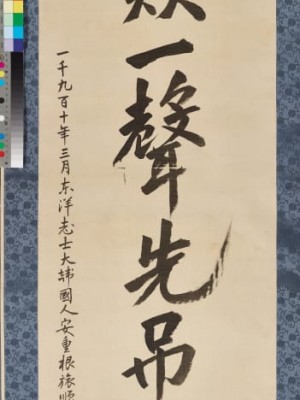 一聲先吊
一千九百十年三月东洋志士大韓國人安重根旅順